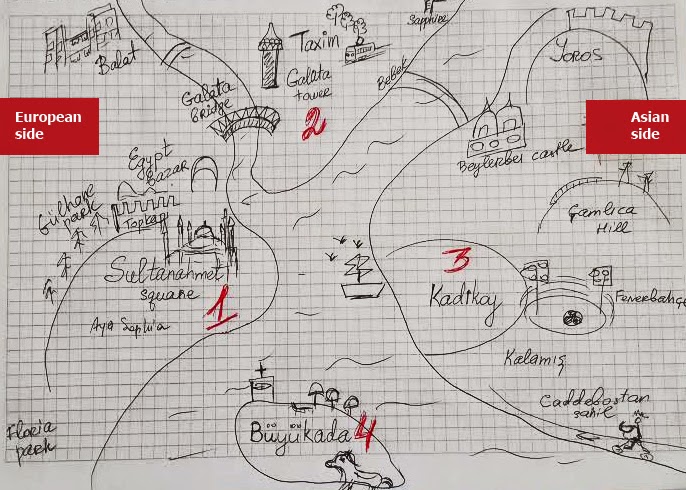 Sapphire
Taxim
Balat
Galata
tower
2
Bebek
YOROS
Galata
Bridge
European
side
Asian
side
Egypt
Bazar
Beylerbei castle
Gülhane
park
Topkapi
Çamlica
Hill
Sultanahmet
square
1
3
Kadikoy
Fenerbahçe
Aya Sophia
Kalamiş
Caddebostan
sahil
Büyükada 4
Floria
park